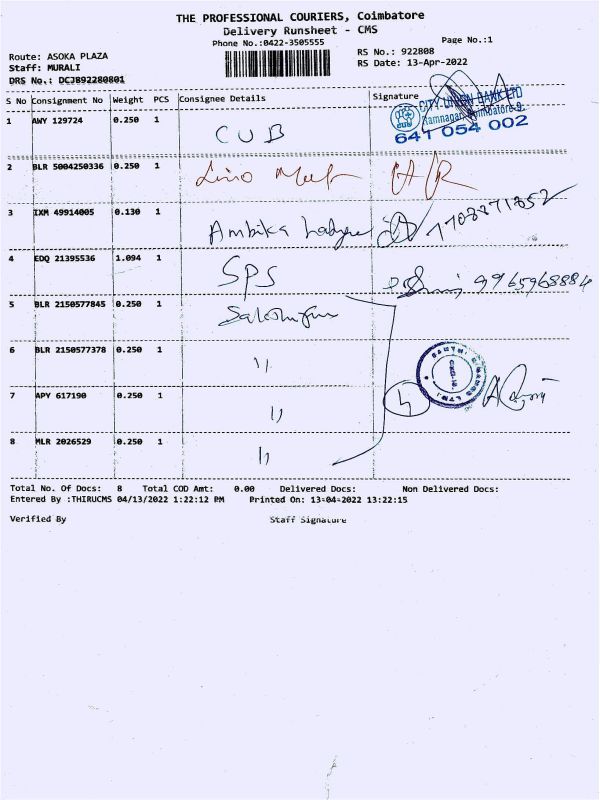 THE PROFESSIONAL COURIERS, Coimbatore
Delivery Runsheet - CMS
Phone No.:0422-3505555
Page No.:1
Route: ASOKA PLAZA
Staff: MURALI
DRS No.: DCJB92280801
RS No.: 922808
RS Date: 13-Apr-2022
S No Consignment No Weight PCS Consignee Details Signature
CITY UNION BANK LTD
Ramnagar, Coimbatore-9.
641 054 002
1 AWY 129724 0.250 1 CUB
2 BLR 5004250336 0.250 1
3 IXM 49914005 0.130 1 Ambika 7708871352
4 EDQ 21395536 1.094 1 SPS 9965968884
5 BLR 2150577845 0.250 1
6 BLR 2150577378 0.250 1 "
7 APY 617190 0.250 1 "
8 MLR 2026529 0.250 1 "
4
Total No. Of Docs: 8 Total COD Amt: 0.00 Delivered Docs: Non Delivered Docs:
Entered By :THIRUCMS 04/13/2022 1:22:12 PM Printed On: 13-04-2022 13:22:15
Verified By Staff Signature